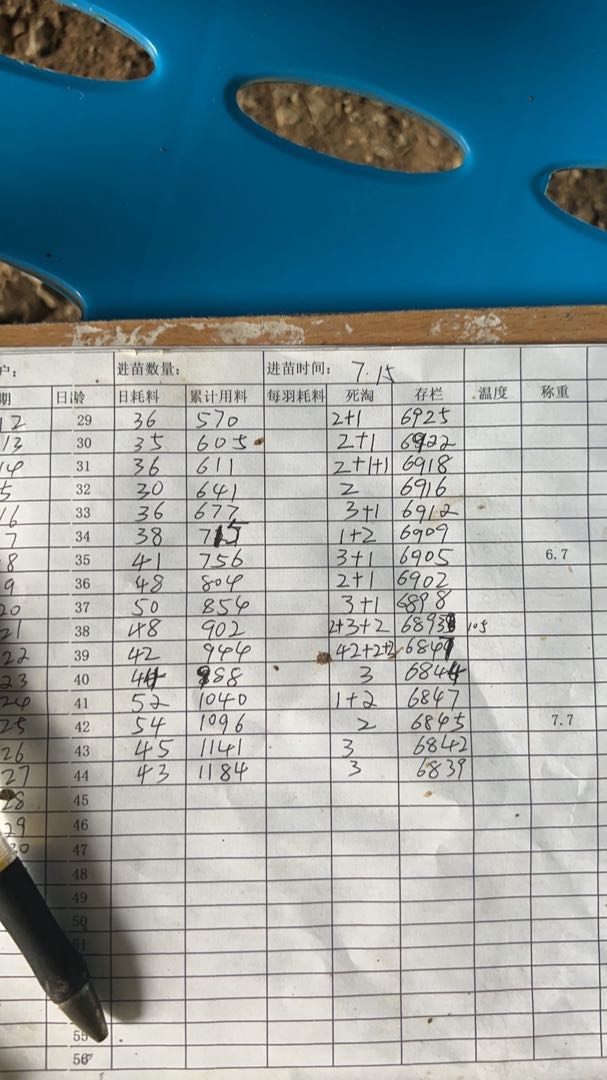 户： 进苗数量： 进苗时间： 7.15
期 日龄 日耗料 累计用料 每羽耗料 死淘 存栏 温度 称重
12 29 36 570 2+1 6925
13 30 35 605 2+1 6922
14 31 36 611 2+1+1 6918
5 32 30 641 2 6916
16 33 36 677 3+1 6912
7 34 38 715 1+2 6909
8 35 41 756 3+1 6905 6.7
9 36 48 804 2+1 6902
20 37 50 854 3+1 6898
21 38 48 902 2+3+2 6893 105
22 39 42 944 42+2+2 6847
23 40 44 988 3 6844
24 41 52 1040 1+2 6847
25 42 54 1096 2 6845 7.7
26 43 45 1141 3 6842
27 44 43 1184 3 6839
28 45
29 46
30 47
48
49
50
51
55
56